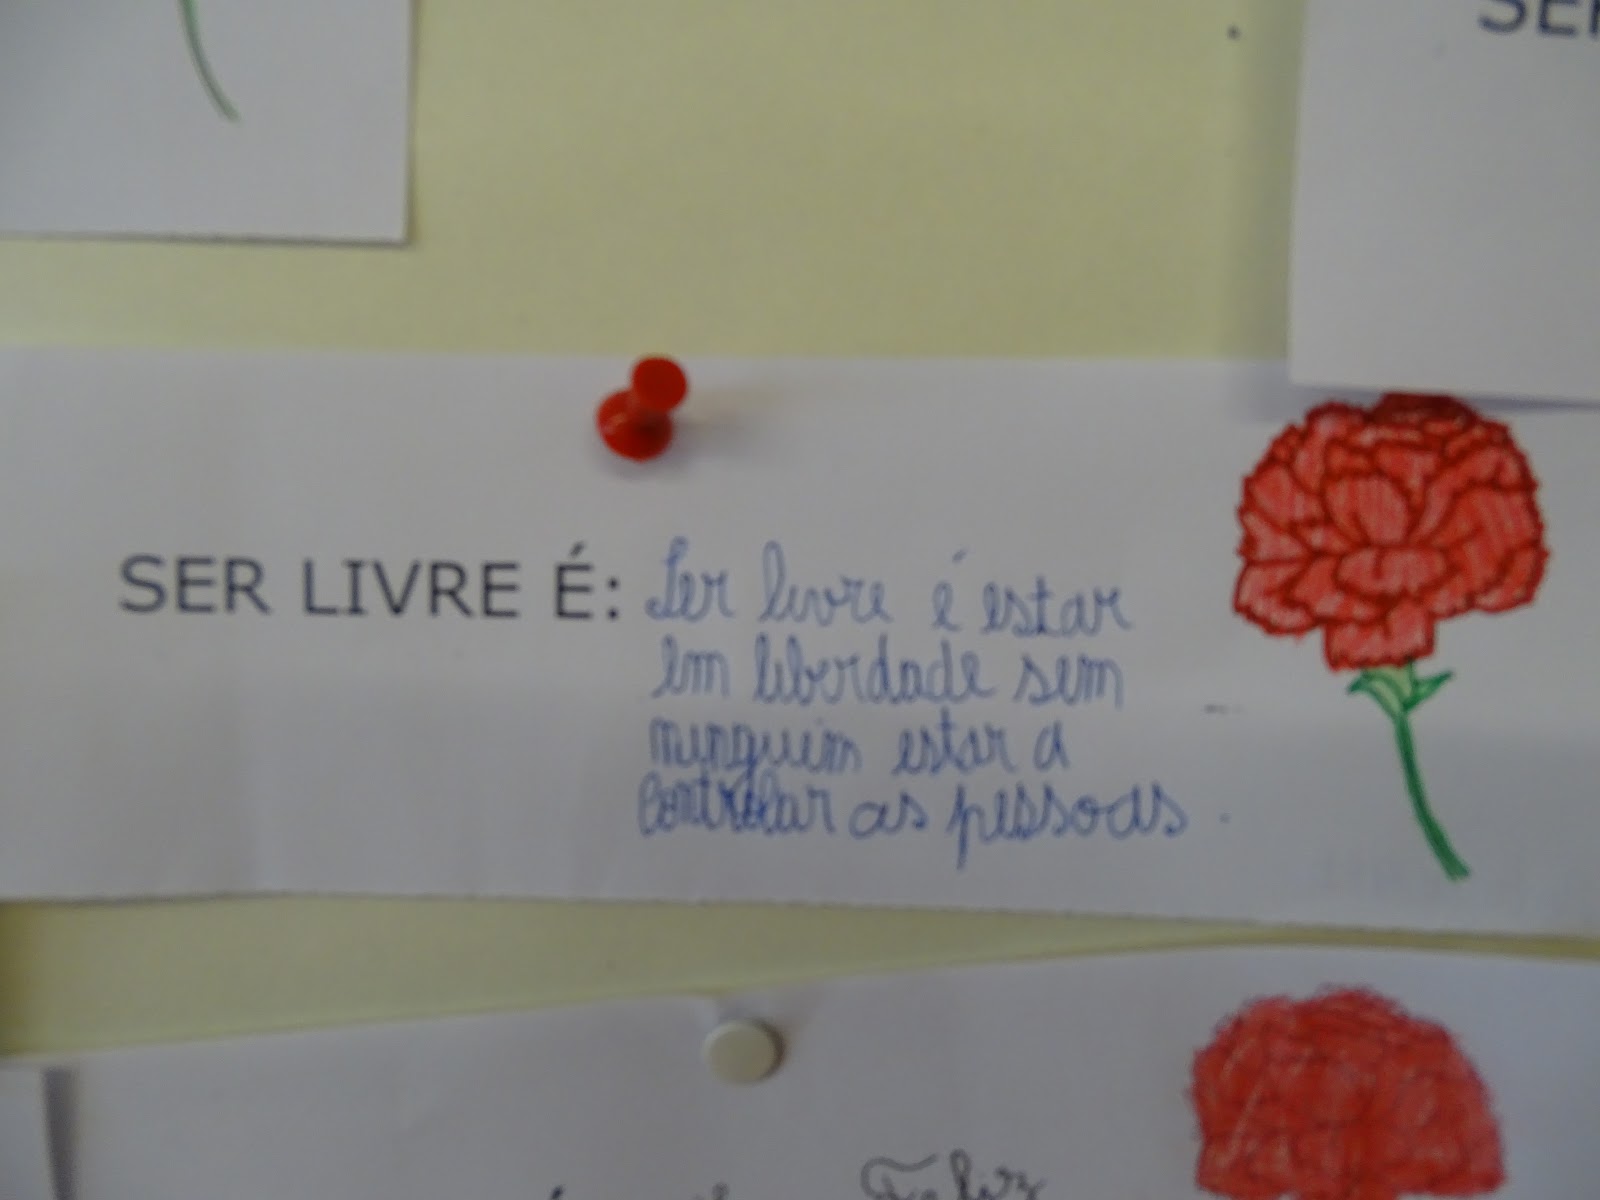 SER
SER LIVRE É: Ser livre é estar
em liberdade sem
ninguém estar a
controlar as pessoas.
Feliz